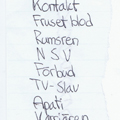 Kontakt
Fruset blod
Rumsren
N S V
Förbud
TV-Slav
Apati
Varriären